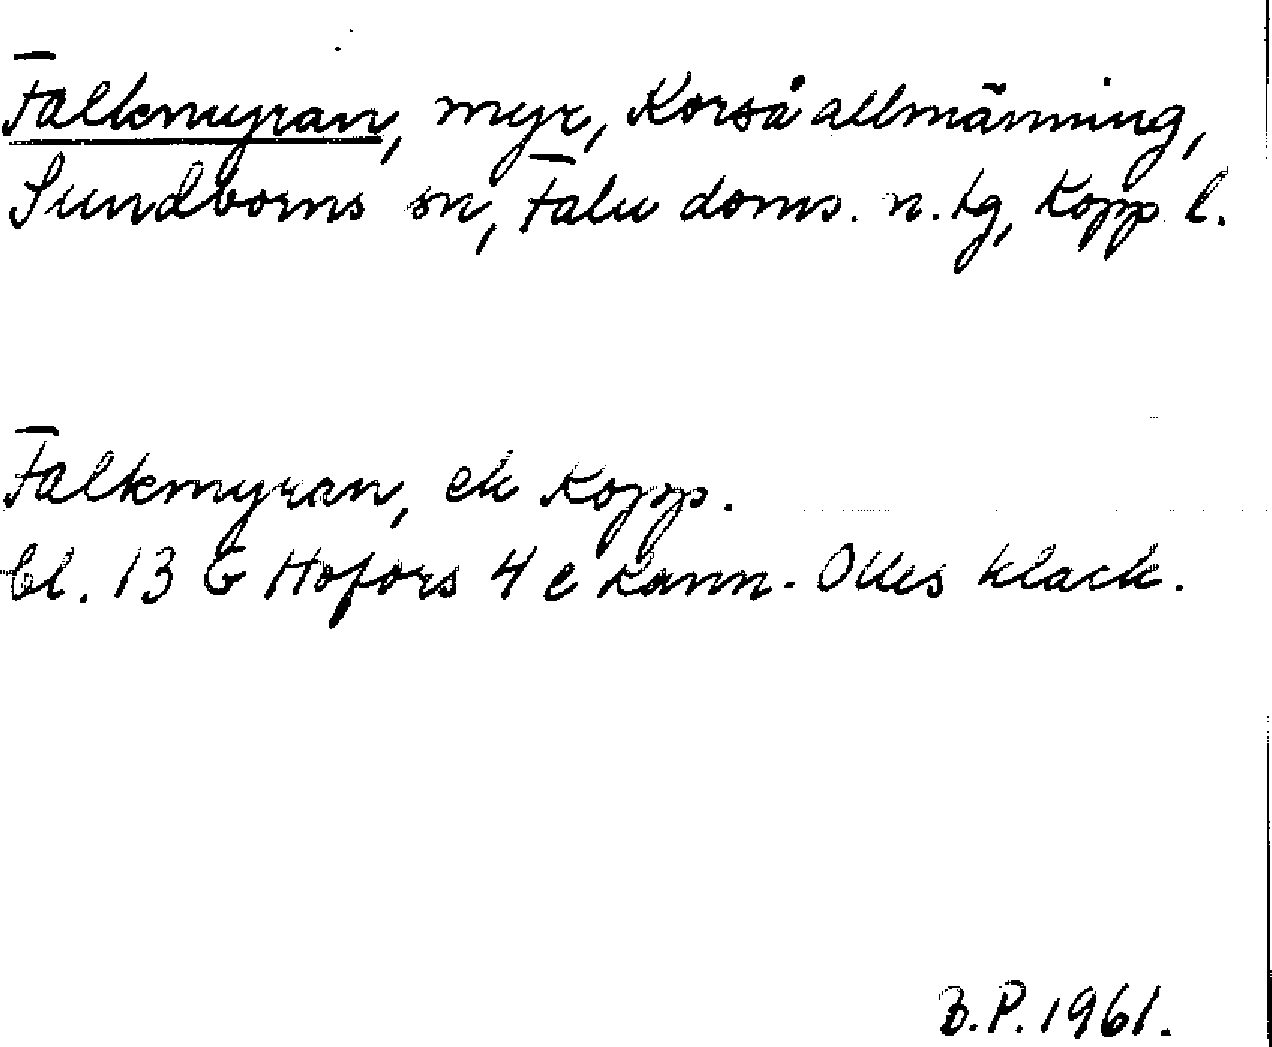 Falkmyran, myr, Korså allmänning,
Sundborns sn, Falu doms. n. tg, Kopp l.
Falkmyran, ek Kopp.
bl. 13 G Hofors 4 e Lann- Olles klack.
B.P. 1961.